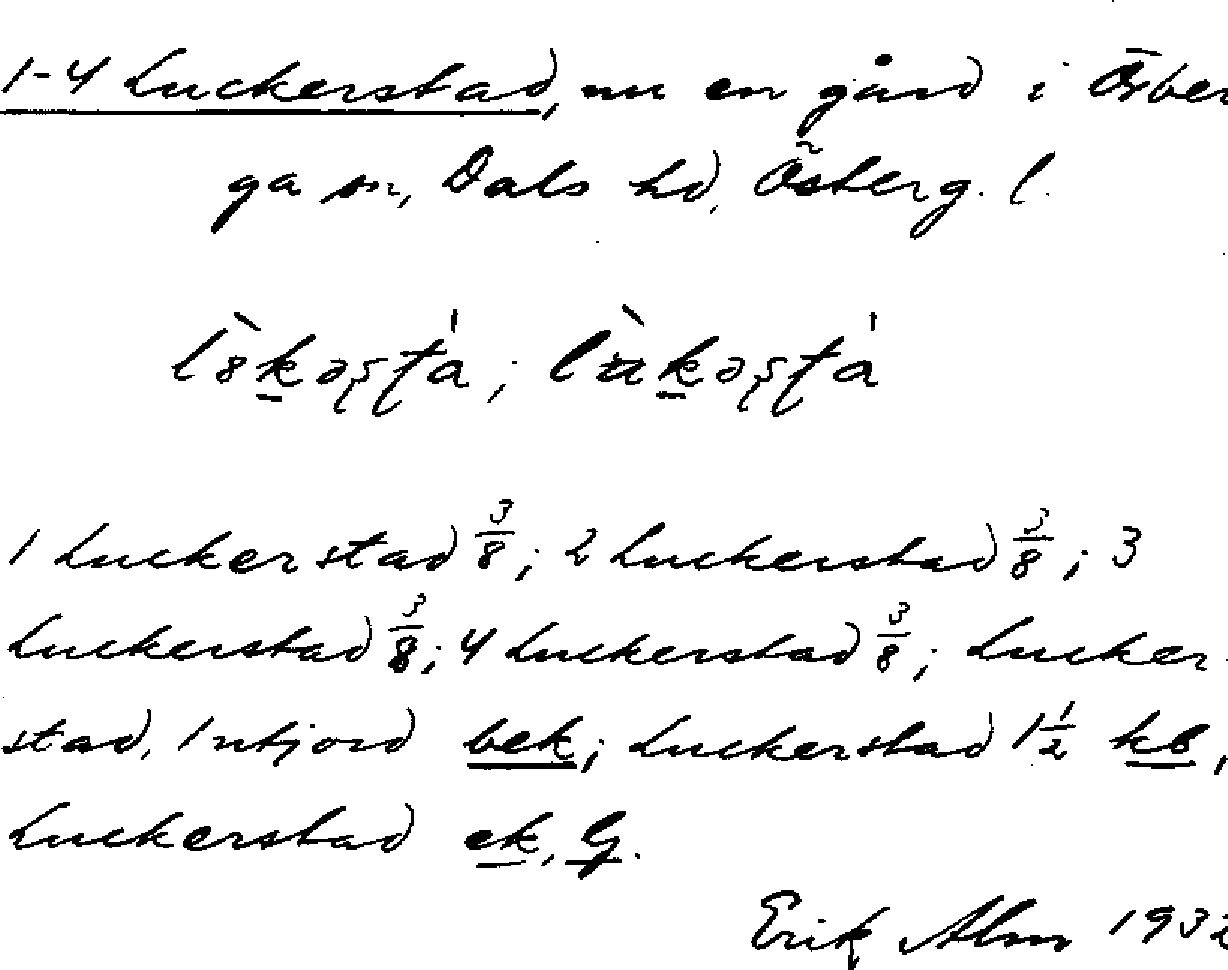 1-4 Luckerstad, nu en gård i Örber
ga sn, Dals hd, Österg. l.
1 Luckerstad 3/8; 2 Luckerstad 3/8; 3
Luckerstad 3/8; 4 Luckerstad 3/8; Lucker-
stad, 1 utjord bek; Luckerstad 1 1/2 kb,
Luckerstad ek, G.
Erik Alm 193